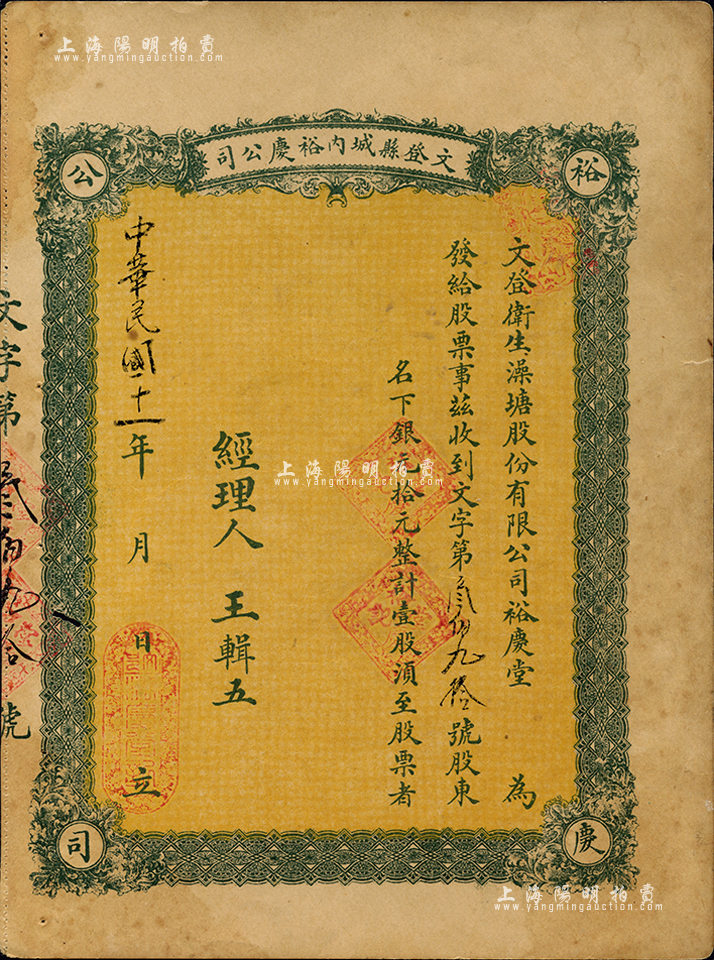 上海陽明拍賣
www.yangmingauction.com
文登縣城內裕慶公司
裕
慶
公
司
文登衛生澡塘股份有限公司裕慶堂 為
發給股票事茲收到文字第叁佰九拾號股東
名下銀元拾元整計壹股須至股票者
經理人 王輯五
中華民國十一年 月 日 立
文字第叁佰九拾號
上海陽明拍賣
www.yangmingauction.com
上海陽明拍賣
www.yangmingauction.com